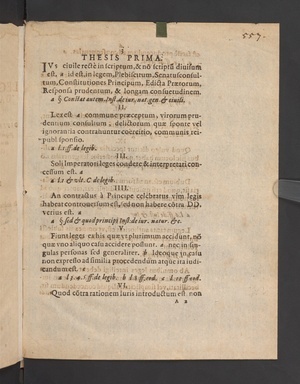 557.
THESIS PRIMA.
IVs ciuile rectè in scriptum, & nõ scriptũ diuisum
est. a id est, in legem, Plebiscitum, Senatusconsul-
tum, Constitutiones Principum, Edicta Prætorum,
Responsa prudentum, & longam consuetudinem.
a § Constat autem. Inst de iur. nat. gen. & ciuili.
II.
Lex est a commune præceptum, virorum pru-
dentum consultum; delictorum, quæ sponte vel
ignorantia contrahuntur coërcitio, communis rei-
publ. sponsio.
a l. 1 ff de legib.
III.
Soli Imperatori leges condere & interpretari con-
cessum est. a
a l. 1 & vlt. C de legib.
IIII.
An contractus à Principe celebratus vim legis
habeat controuersum est, sed non habere cõtra DD.
verius est. a
a § sed & quod principi Inst de iur. natur. &c.
V.
Fiunt leges ex his quæ vt plurimum accidunt, nõ
quæ vno aliquo casu accidere possunt. a nec in sin-
gulas personas sed generaliter. b Ideoque in casu
non expresso ad similia procedendum atque ita iudi-
candum est.
a l. 3. 4. ff de legib. b l. 8 ff. eod. c l. 12 ff. eod.
VI.
Quod cõtra rationem iuris introductum est non
A 2